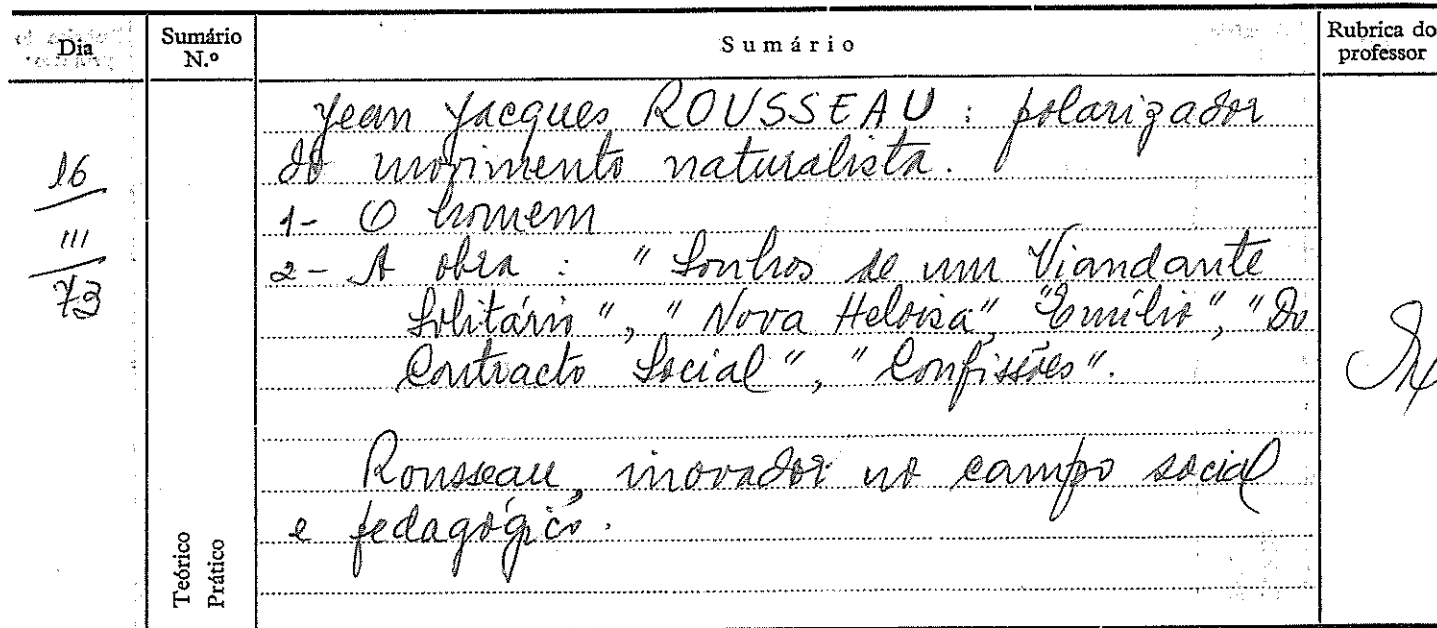 Dia
Sumário N.º
Sumário
Rubrica do professor
16
III
73
Jean Jacques ROUSSEAU : polarizador
do movimento naturalista.
1- O homem
2- A obra : "Sonhos de um Viandante
Solitário", "Nova Heloisa", "Emílio", "Do
Contracto Social", "Confissões".
Rousseau, inovador no campo social
e pedagógico.
Teórico
Prático